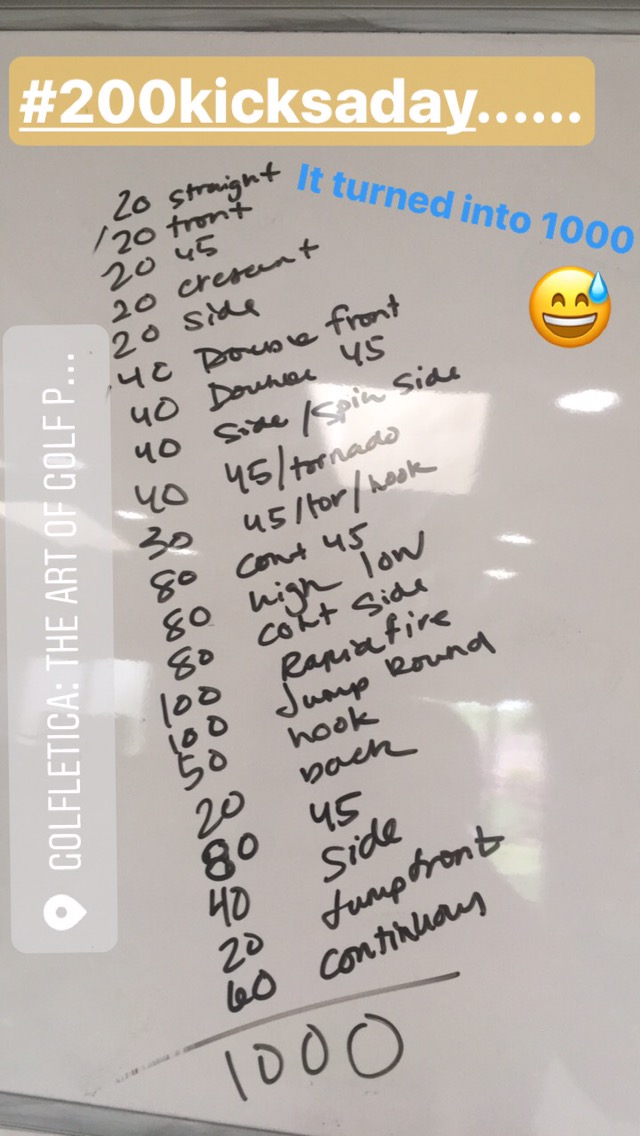 #200kicksaday......
It turned into 1000
20 straight
20 front
20 45
20 crescent
20 side
40 Double front
40 Double 45
40 Side/Spin Side
40 45/tornado
30 45/tor/hook
80 cont 45
80 high low
80 cont Side
100 Rapid fire
100 Jump Round
50 hook
20 back
80 45
40 Side
20 Jump front
60 continuous
1000
GOLFLETICA: THE ART OF GOLF P...